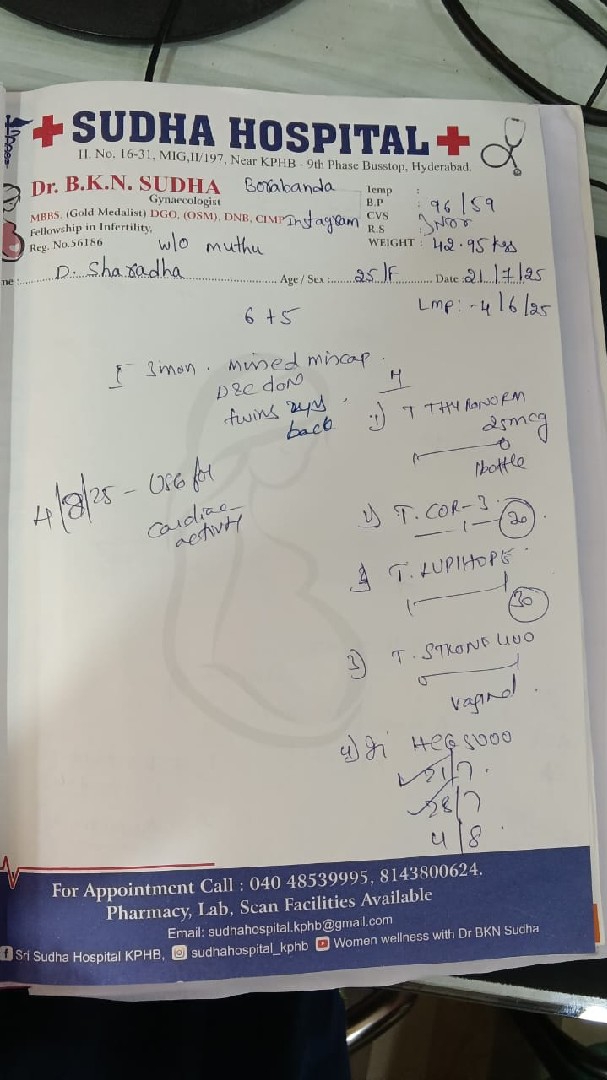 SUDHA HOSPITAL
H. No. 16-31, MIG,II/197, Near KPHB - 9th Phase Busstop, Hyderabad.
Dr. B.K.N. SUDHA
Gynaecologist
MBBS, (Gold Medalist) DGO, (OSM), DNB, CIMP
Fellowship in Infertility,
Reg. No.56186
Borabanda
Instagram
w/o muthu
Temp :
B.P : 96/59
CVS :
R.S :
WEIGHT : 42.95 kgs
D. Sharadha Age / Sex : 25/F Date 21/7/25
Lmp: - 4/6/25
6 + 5
I 3mon. missed miscap.
D&C don
twins 2yrs
back
1) T THYRONORM
25mcg
1bottle
4/8/25 - USG for
cardiac
activity
2) T. COR-3
30
T. LUPIHOPE
30
3) T. STRONE 400
vaginal.
4) Inj HCG 5000
21/7.
28/7
4/8.
For Appointment Call : 040 48539995, 8143800624.
Pharmacy, Lab, Scan Facilities Available
Email: sudhahospital.kphb@gmail.com
Sri Sudha Hospital KPHB, sudhahospital_kphb Women wellness with Dr BKN Sudha